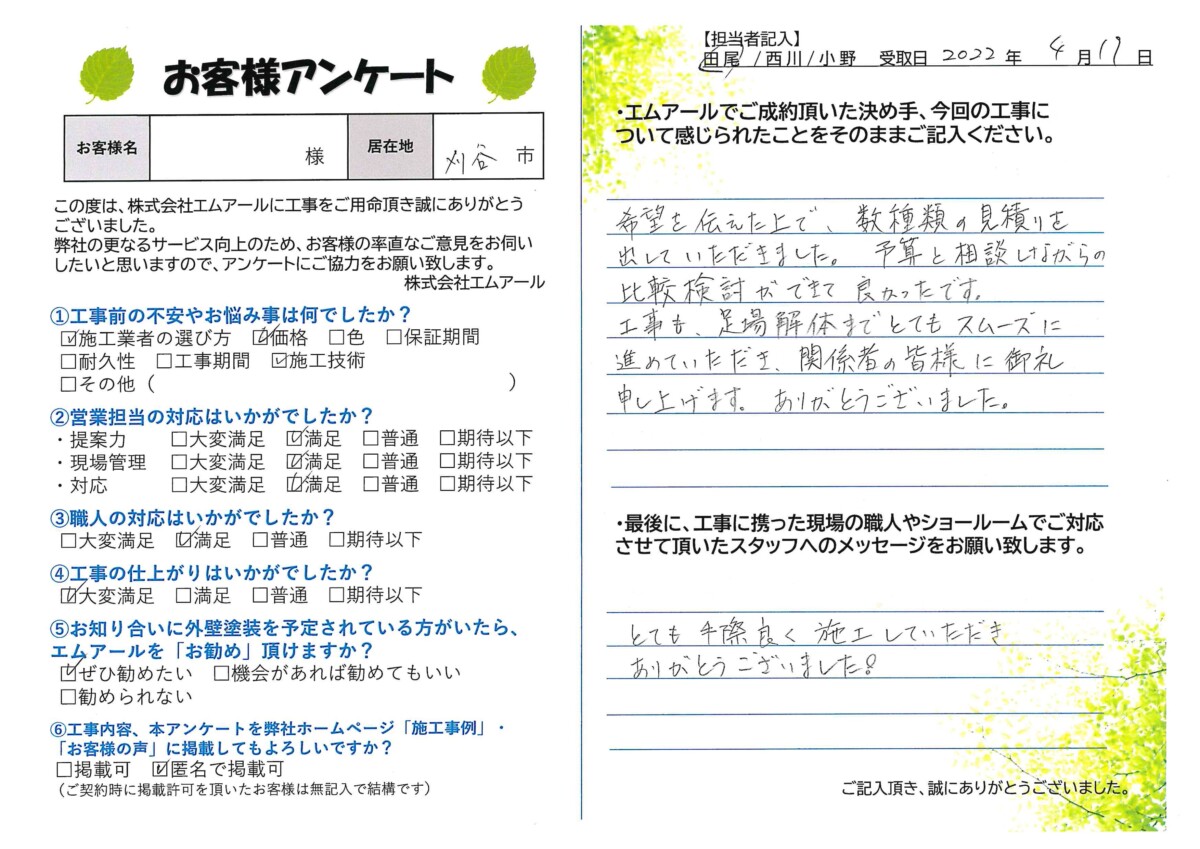 お客様アンケート
お客様名 様 居在地 刈谷 市
この度は、株式会社エムアールに工事をご用命頂き誠にありがとう
ございました。
弊社の更なるサービス向上のため、お客様の率直なご意見をお伺い
したいと思いますので、アンケートにご協力をお願い致します。
株式会社エムアール
①工事前の不安やお悩み事は何でしたか?
☑施工業者の選び方 ☑価格 □色 □保証期間
□耐久性 □工事期間 ☑施工技術
□その他( )
②営業担当の対応はいかがでしたか?
・提案力 □大変満足 ☑満足 □普通 □期待以下
・現場管理 □大変満足 ☑満足 □普通 □期待以下
・対応 □大変満足 ☑満足 □普通 □期待以下
③職人の対応はいかがでしたか?
□大変満足 ☑満足 □普通 □期待以下
④工事の仕上がりはいかがでしたか?
☑大変満足 □満足 □普通 □期待以下
⑤お知り合いに外壁塗装を予定されている方がいたら、
エムアールを「お勧め」頂けますか?
☑ぜひ勧めたい □機会があれば勧めてもいい
□勧められない
⑥工事内容、本アンケートを弊社ホームページ「施工事例」・
「お客様の声」に掲載してもよろしいですか?
□掲載可 ☑匿名で掲載可
(ご契約時に掲載許可を頂いたお客様は無記入で結構です)
【担当者記入】
田尾/西川/小野 受取日 2022 年 4 月 17 日
・エムアールでご成約頂いた決め手、今回の工事に
ついて感じられたことをそのままご記入ください。
希望を伝えた上で、数種類の見積りを
出していただきました。 予算と相談しながらの
比較検討ができて良かったです。
工事も、足場解体までとてもスムーズに
進めていただき、関係者の皆様に御礼
申し上げます。ありがとうございました。
・最後に、工事に携った現場の職人やショールームでご対応
させて頂いたスタッフへのメッセージをお願い致します。
とても手際良く施工していただき
ありがとうございました!
ご記入頂き、誠にありがとうございました。